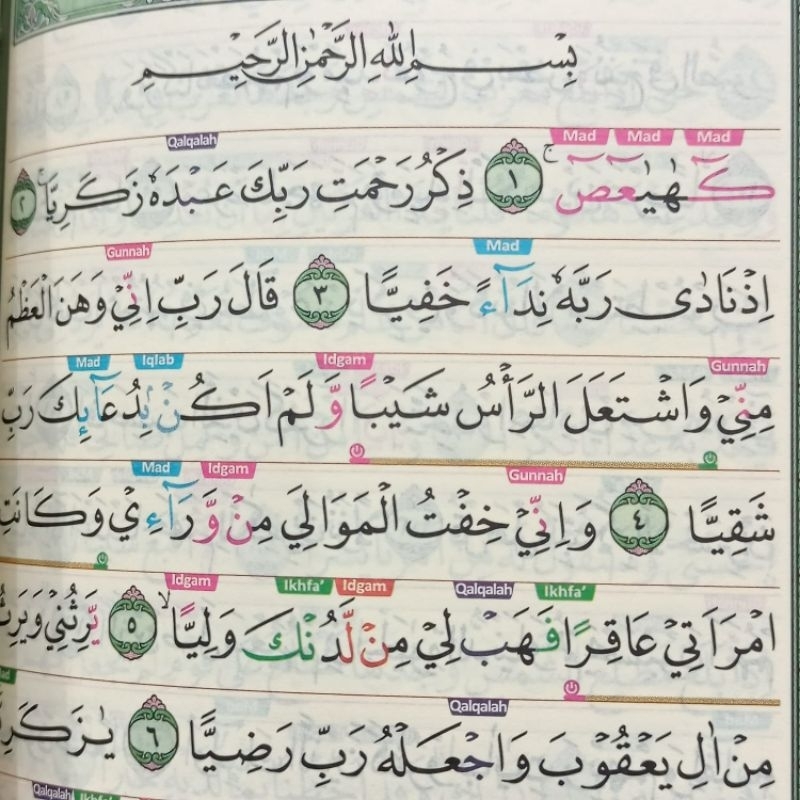 بِسْمِ اللهِ الرَّحْمٰنِ الرَّحِيْمِ
Mad Mad Mad Qalqalah
كۤهٰيٰعۤصۤ ۚ ١ ذِكْرُ رَحْمَتِ رَبِّكَ عَبْدَهٗ زَكَرِيَّا ۚ ٢
Mad Gunnah
اِذْ نَادٰى رَبَّهٗ نِدَاۤءً خَفِيًّا ٣ قَالَ رَبِّ اِنِّيْ وَهَنَ الْعَظْمُ
Gunnah Idgam Iqlab Mad
مِنِّيْ وَاشْتَعَلَ الرَّأْسُ شَيْبًا وَّلَمْ اَكُنْۢ بِدُعَاۤىِٕكَ رَبِّ
Gunnah Idgam Mad
شَقِيًّا ٤ وَاِنِّيْ خِفْتُ الْمَوَالِيَ مِنْ وَّرَاۤءِيْ وَكَانَتِ
Ikhfa' Qalqalah Idgam Ikhfa' Idgam
امْرَاَتِيْ عَاقِرًا فَهَبْ لِيْ مِنْ لَّدُنْكَ وَلِيًّا ۙ ٥ يَّرِثُنِيْ وَيَرِثُ
Qalqalah
مِنْ اٰلِ يَعْقُوْبَ وَاجْعَلْهُ رَبِّ رَضِيًّا ٦
Qalqalah